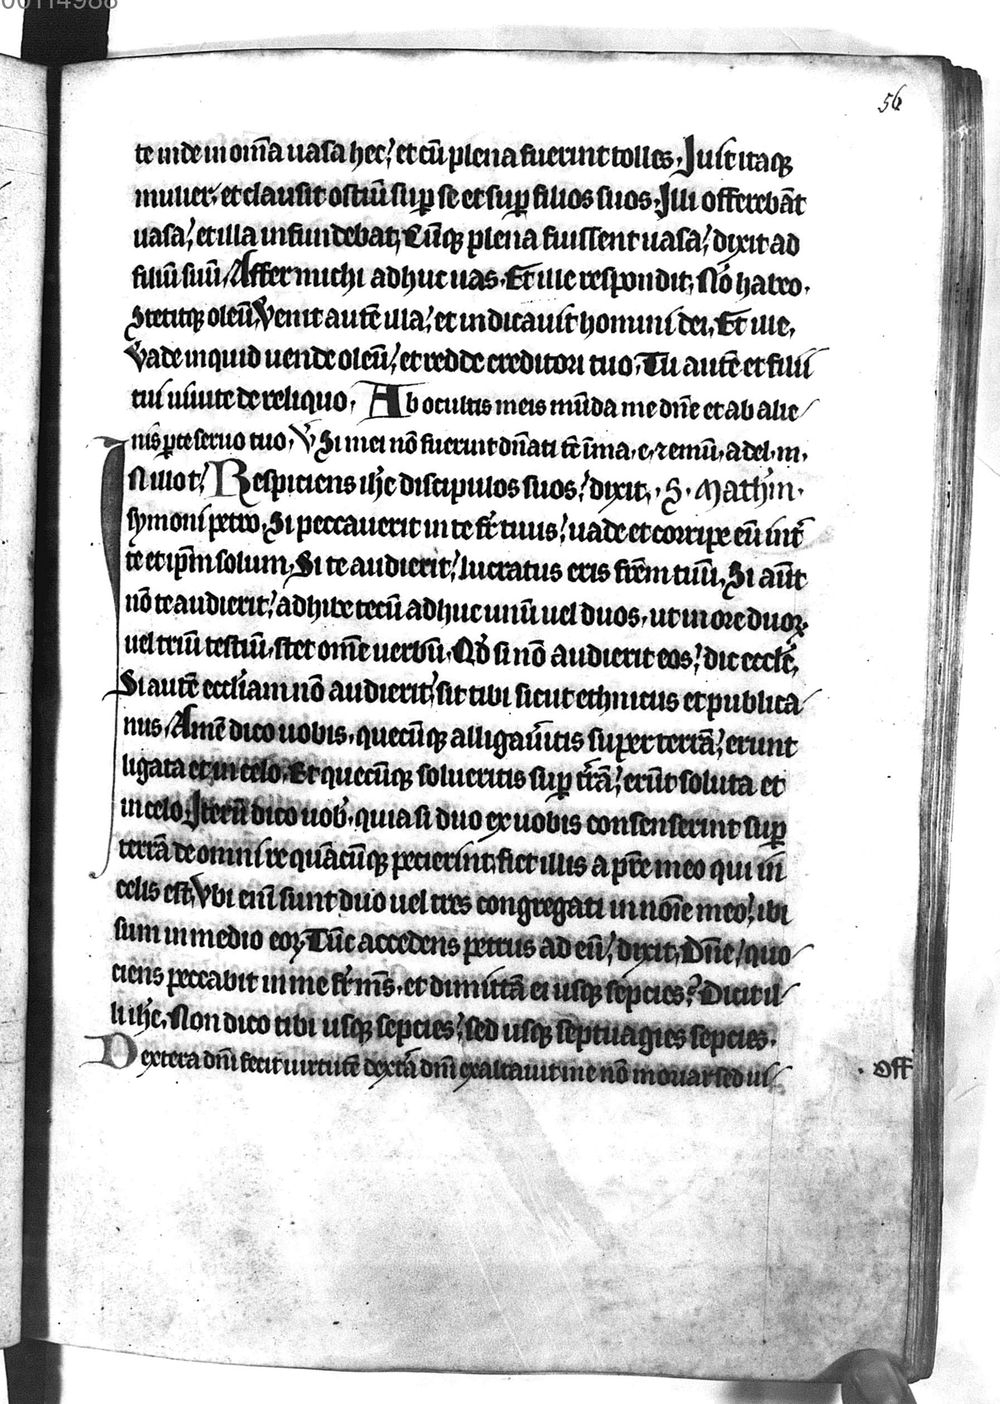 00114988
56
te inde in om̄a uasa hec; et cū plena fuerint tolles. Iuit itaq̨
mulier. et clausit ostiū sup̱ se et sup̱ filios suos. Illi offerebāt
uasa; et illa infundebat. Cūq̨ plena fuissent uasa; dixit ad
filiū suū. Affer michi adhuc uas. Et ille respondit. Nō habeo.
Stetitq̨ oleū. Venit autē illa; et indicauit homini dei. Et ille.
Vade inquid uende oleū; et redde creditori tuo. Tu autē et filii
tui uiuite de reliquo. Ab ocultis meis mūda me dn̄e et ab alie
nis p̱ce seruo tuo. V̄ Si mei nō fuerint dn̄ati tc̄ īma. e. ⁊ emū. a del. m.
In illo t̄. Respiciens ih̄c discipulos suos; dixit. S. Mathm̄.
symoni petro. Si peccauerit in te fr̄ tuus; uade et corripe eū int̄
te et ip̄m solum. Si te audierit; lucratus eris fr̄em tuū. Si aūt
nō te audierit; adhibe tecū adhuc unū uel duos. ut in ore duoꝝ
uel triū testiū. stet om̄e uerbū. Qd̄ si nō audierit eos; dic eccle̅.
Si autē eccl̄iam nō audierit; sit tibi sicut ethnicus et publica
nus. Amē dico uobis. quecūq̨ alligau̅itis super terrā; erunt
ligata et in celo. Et quecūq̨ solueritis sup̱ tr̄ā; erūt soluta et
in celo. Iterū dico uob̄. quia si duo ex uobis consenserint sup̱
terrā de omni re quācūq̨ pecierint. fiet illis a pr̄e meo qui in
celis est. Vbi enī sunt duo uel tres congregati in noīe meo; ibi
sum in medio eoꝝ. Tūc accedens petrus ad eū; dixit. Dn̄e; quo
ciens peccabit in me fr̄ m̄s. et dimittā ei usq̨ sepcies? Dicit il
li ih̄c. Non dico tibi usq̨ sepcies; sed usq̨ septuagies sepcies.
Dextera dn̄i fecit uirtutē dext̄a dn̄i exaltauit me nō moriar sed ui
. Off